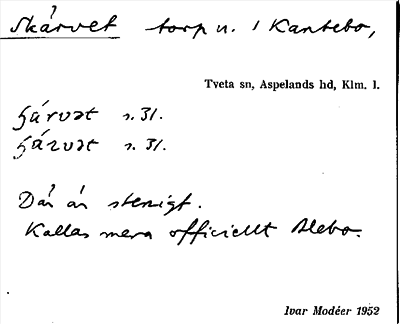 Skárvet torp u. 1 Kantebo,
Tveta sn, Aspelands hd, Klm. l.
ɧárvət s. 31.
ɧárvət s. 31.
Där är stenigt.
Kallas mera officiellt Alebo.
Ivar Modéer 1952